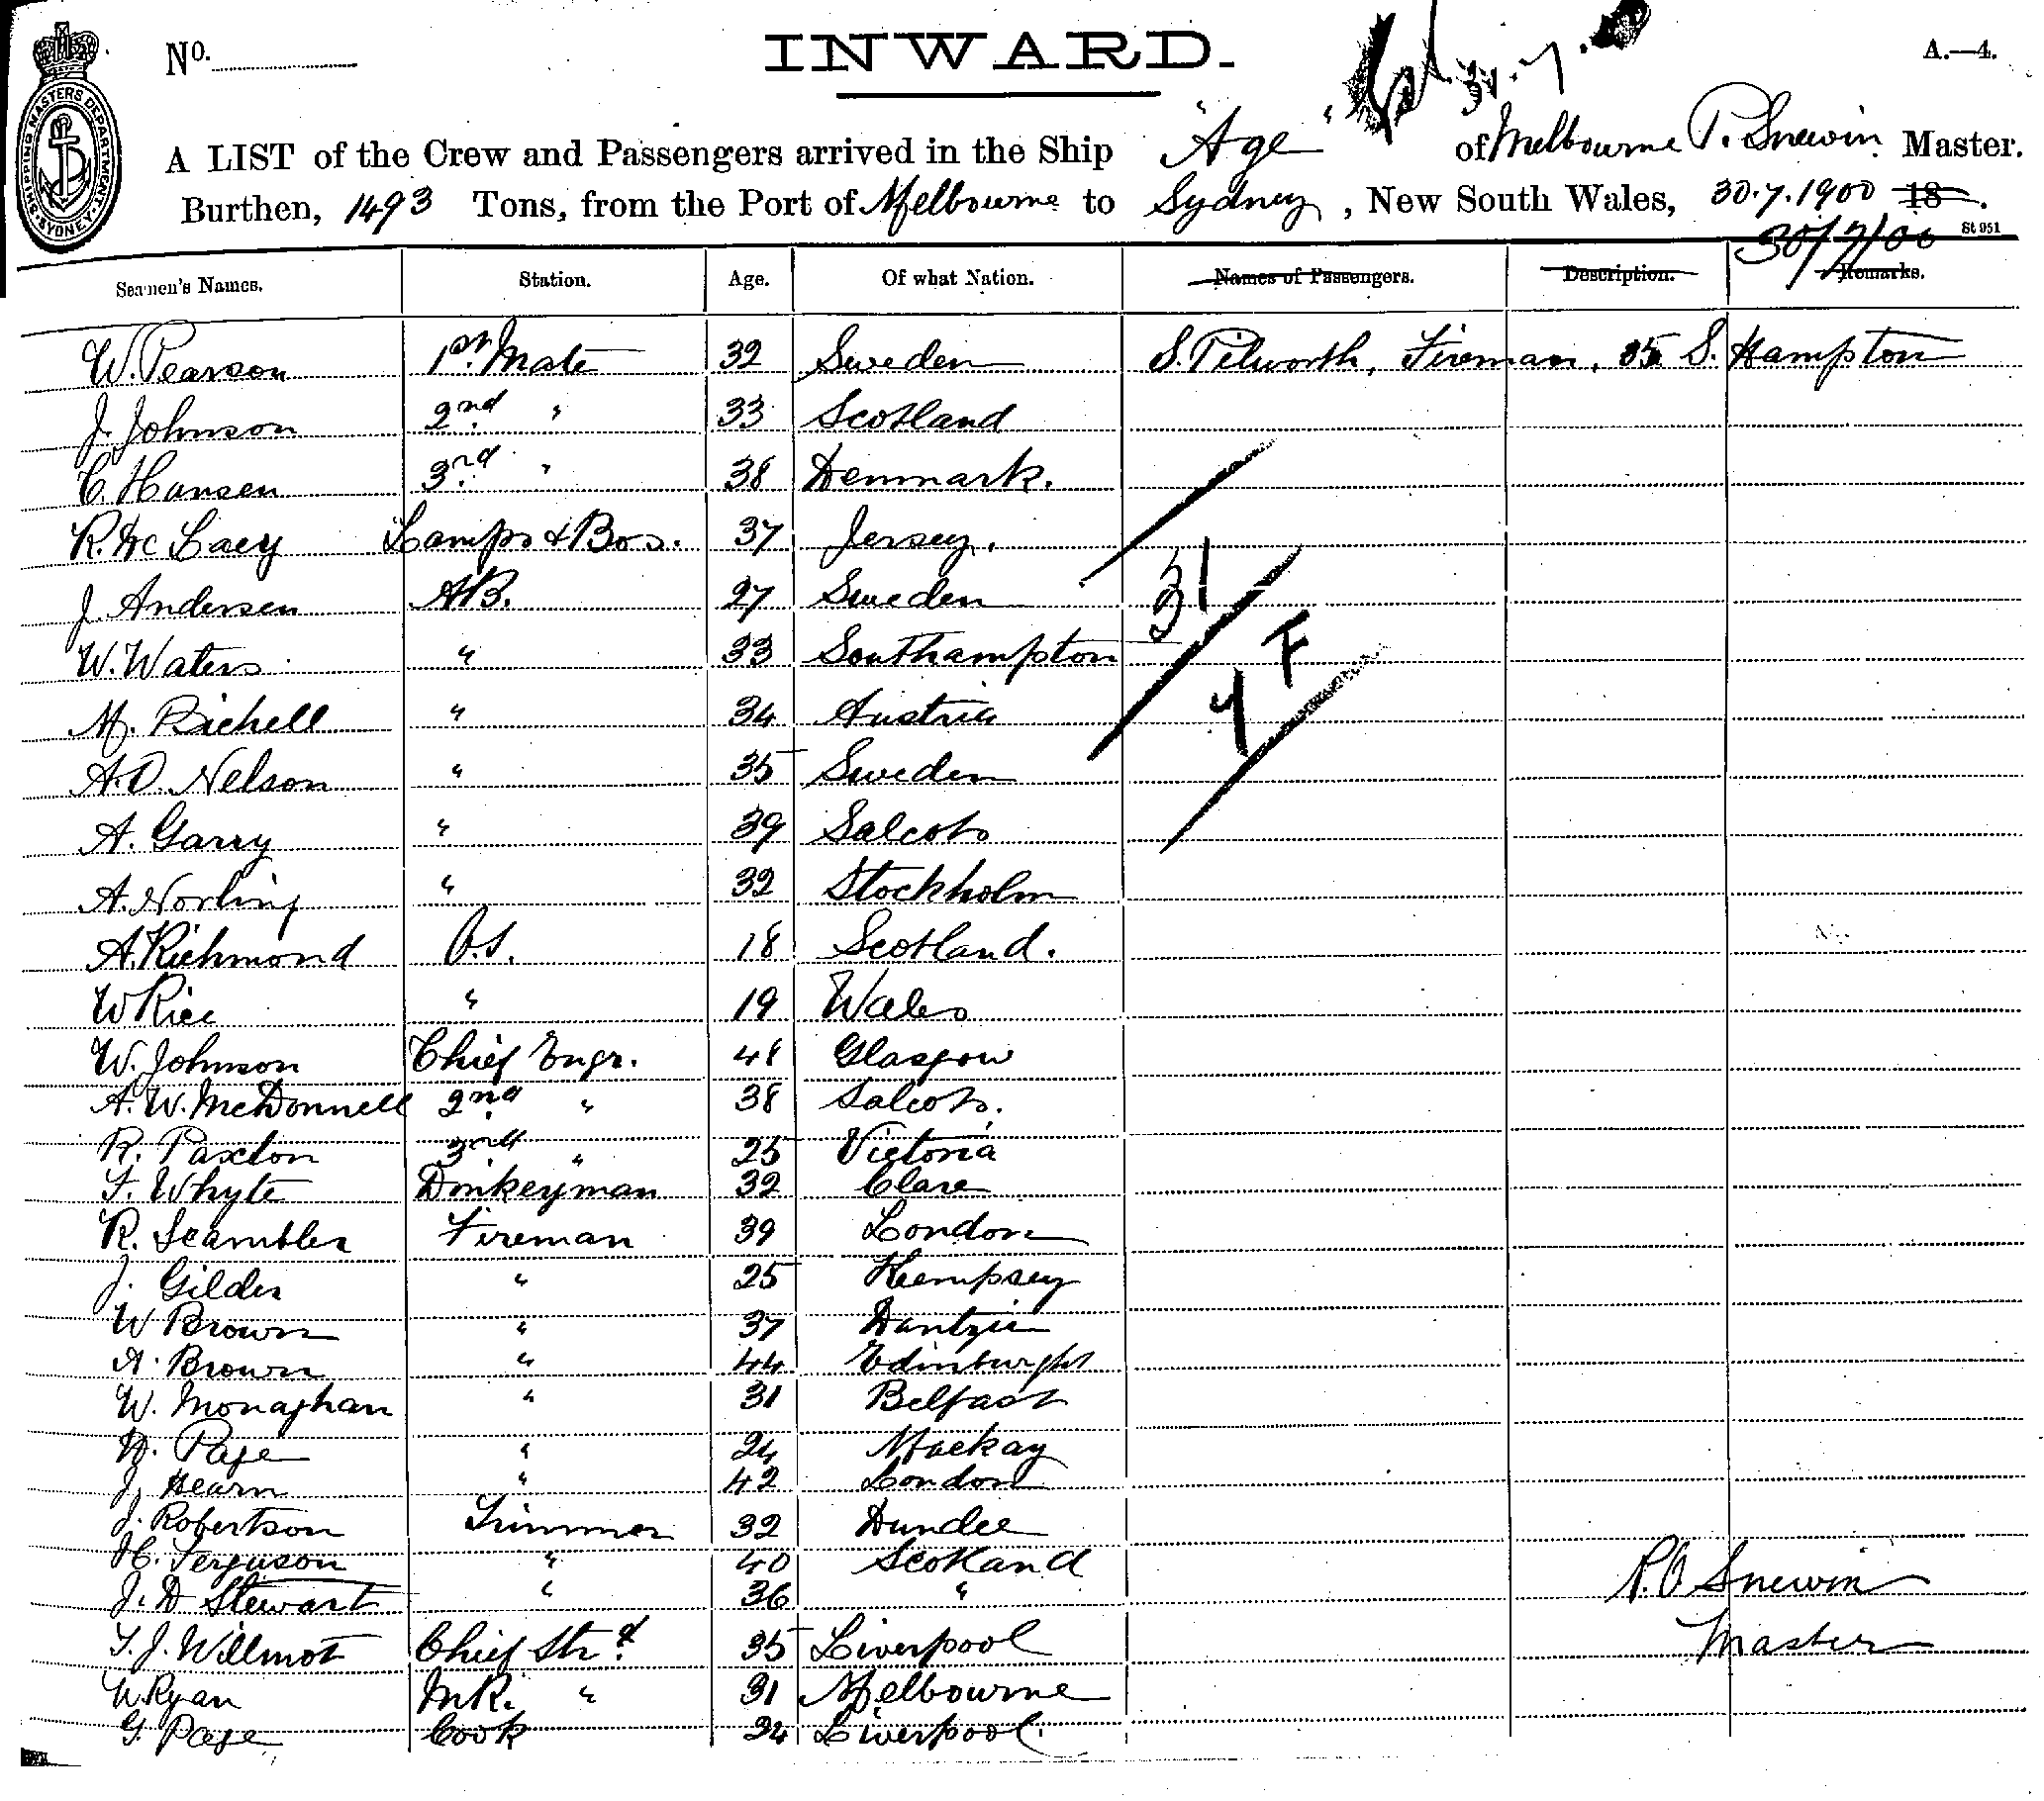 No.
INWARD.
A.—4.
31.7.
SHIPPING MASTERS DEPARTMENT. SYDNEY.
A LIST of the Crew and Passengers arrived in the Ship "Age" of Melbourne P. Snewin Master.
Burthen, 1493 Tons, from the Port of Melbourne to Sydney, New South Wales, 30.7.1900 18 .
30/7/00 St 951
Seamen's Names. Station. Age. Of what Nation. Names of Passengers. Description. Remarks.
W. Pearson 1st Mate 32 Sweden S. Pilworth, Fireman, 35 S. Hampton
J. Johnson 2nd " 33 Scotland
C. Hansen 3rd " 38 Denmark.
R. Mc Lacy Lamps & Bos. 37 Jersey.
J. Andersen AB. 27 Sweden
W. Waters " 33 Southampton
M. Richell " 34 Austria
A.O. Nelson " 35 Sweden
A. Garry " 39 Salcots
A. Norling " 32 Stockholm
A. Richmond O.S. 18 Scotland.
W Rice " 19 Wales
W. Johnson Chief Engr. 48 Glasgow
A. W. McDonnell 2nd " 38 Salcots.
R. Paxton 3rd " 25 Victoria
F. Whyte Donkeyman 32 Clare
R. Scambler Fireman 39 London
J. Gilder " 25 Kempsey
W Brown " 37 Dantzic
A. Brown " 44 Edinburgh
W. Monaghan " 31 Belfast
W. Page " 24 Mackay
J. Hearn " 42 London
J. Robertson Trimmer 32 Dundee
H. Ferguson " 40 Scotland
J. D Stewart " 36 "
T. J. Willmot Chief Strd 35 Liverpool
W. Ryan MR. " 31 Melbourne
G. Page Cook 24 Liverpool.
31
7 F
P. O Snewin
Master